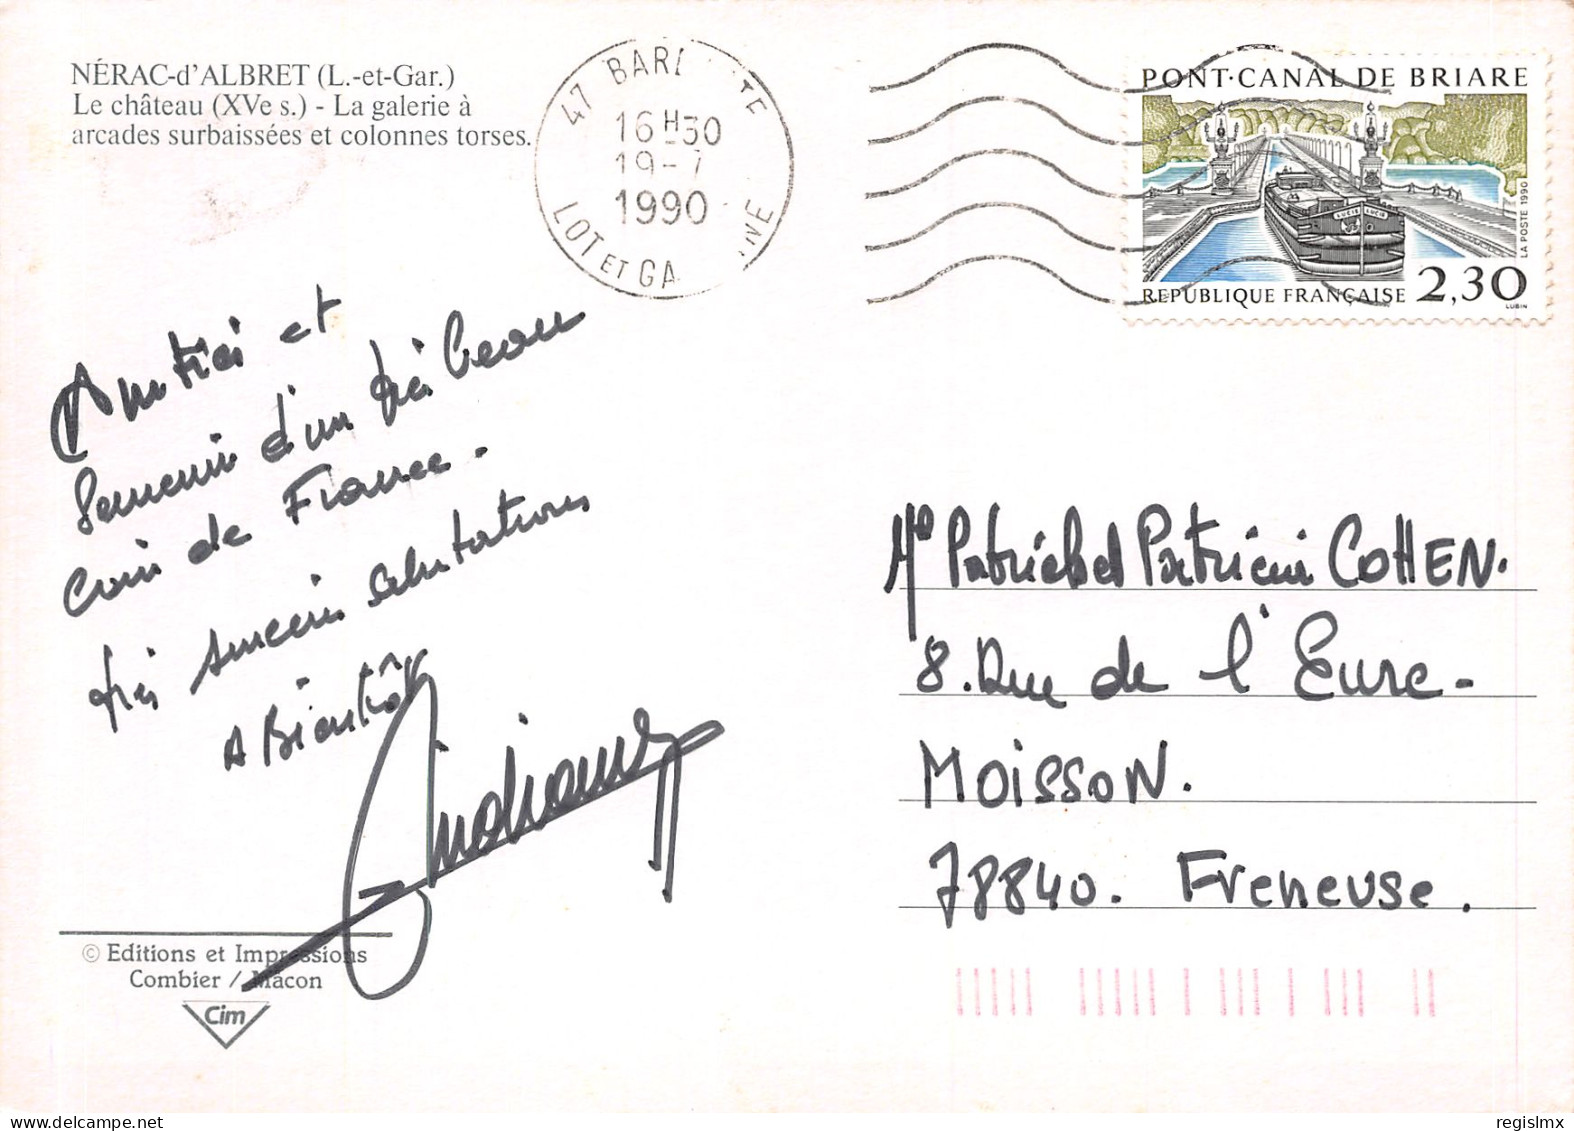 NÉRAC-d'ALBRET (L.-et-Gar.)
Le château (XVe s.) - La galerie à
arcades surbaissées et colonnes torses.
47 BAR TE
16H30
19-7
1990
LOT ET GA NNE
PONT-CANAL DE BRIARE
LUCIE LUCIE
LA POSTE 1990
REPUBLIQUE FRANÇAISE 2,30
LUBIN
Amitiés et
Souvenir d'un très beau
coin de France.
très sincères salutations
A Bientôt
Me Patrick et Patricia COHEN.
8. Rue de l'Eure-
MOISSON.
78840. Freneuse.
© Editions et Impressions
Combier / Mâcon
Cim
regislmx